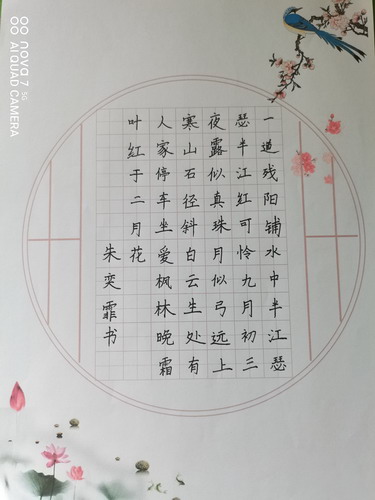 一道残阳铺水中半江瑟
瑟半江红可怜九月初三
夜露似真珠月似弓远上
寒山石径斜白云生处有
人家停车坐爱枫林晚霜
叶红于二月花
朱奕霏书
nova 7 5G
AI QUAD CAMERA